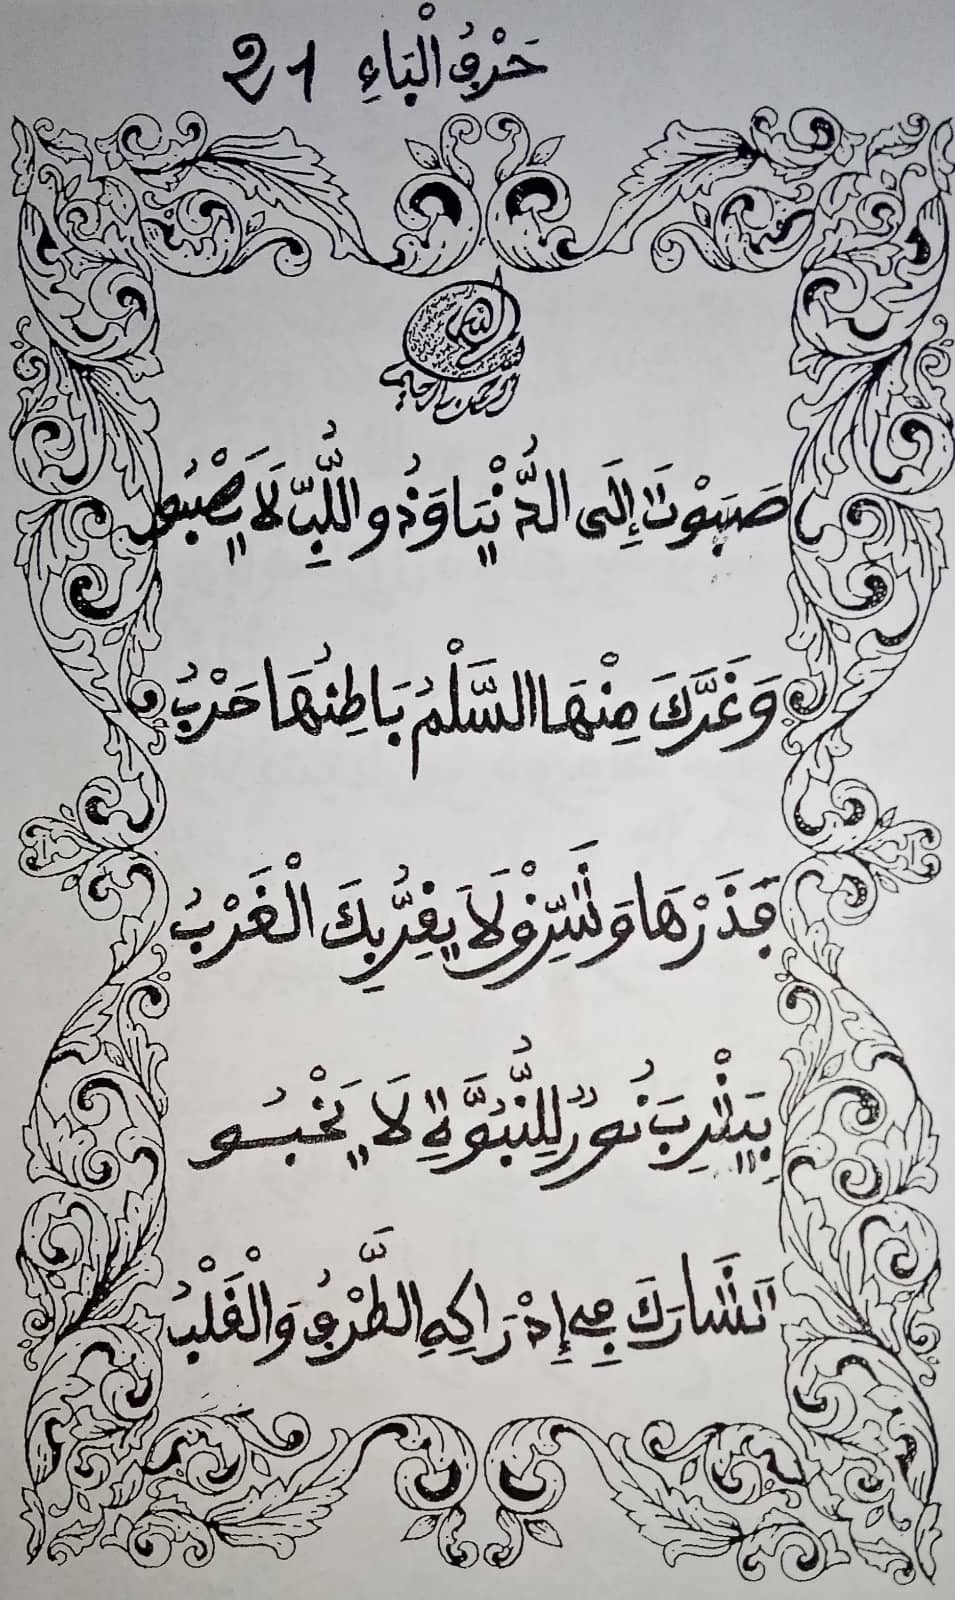 حَرْفُ الْبَاءِ 21
بسم الله الرحمن الرحيم
صَبَوْتَ إِلَى الدُّنْيَا وَذُو اللُّبِّ لَا يَصْبُو
وَغَرَّكَ مِنْهَا السَّلْمُ بَاطِنُهَا حَرْبُ
فَذَرْهَا وَشَرِّقْ لَا يَقِرُّ بِكَ الْغَرْبُ
بِيَثْرِبَ نُورٌ لِلنُّبُوَّةِ لَا يَخْبُو
تَشَارَكَ فِي إِدْرَاكِهِ الطَّرْفُ وَالْقَلْبُ